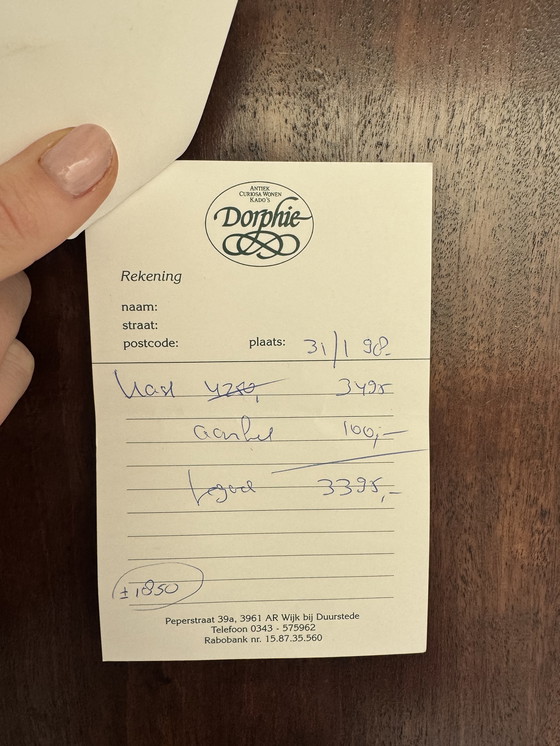 ANTIEK
CURIOSA WONEN
KADO'S
Dorphie
Rekening
naam:
straat:
postcode: plaats: 31/1 98.
Kast 4250, 3495
100,-
3395,-
± 1850
Peperstraat 39a, 3961 AR Wijk bij Duurstede
Telefoon 0343 - 575962
Rabobank nr. 15.87.35.560